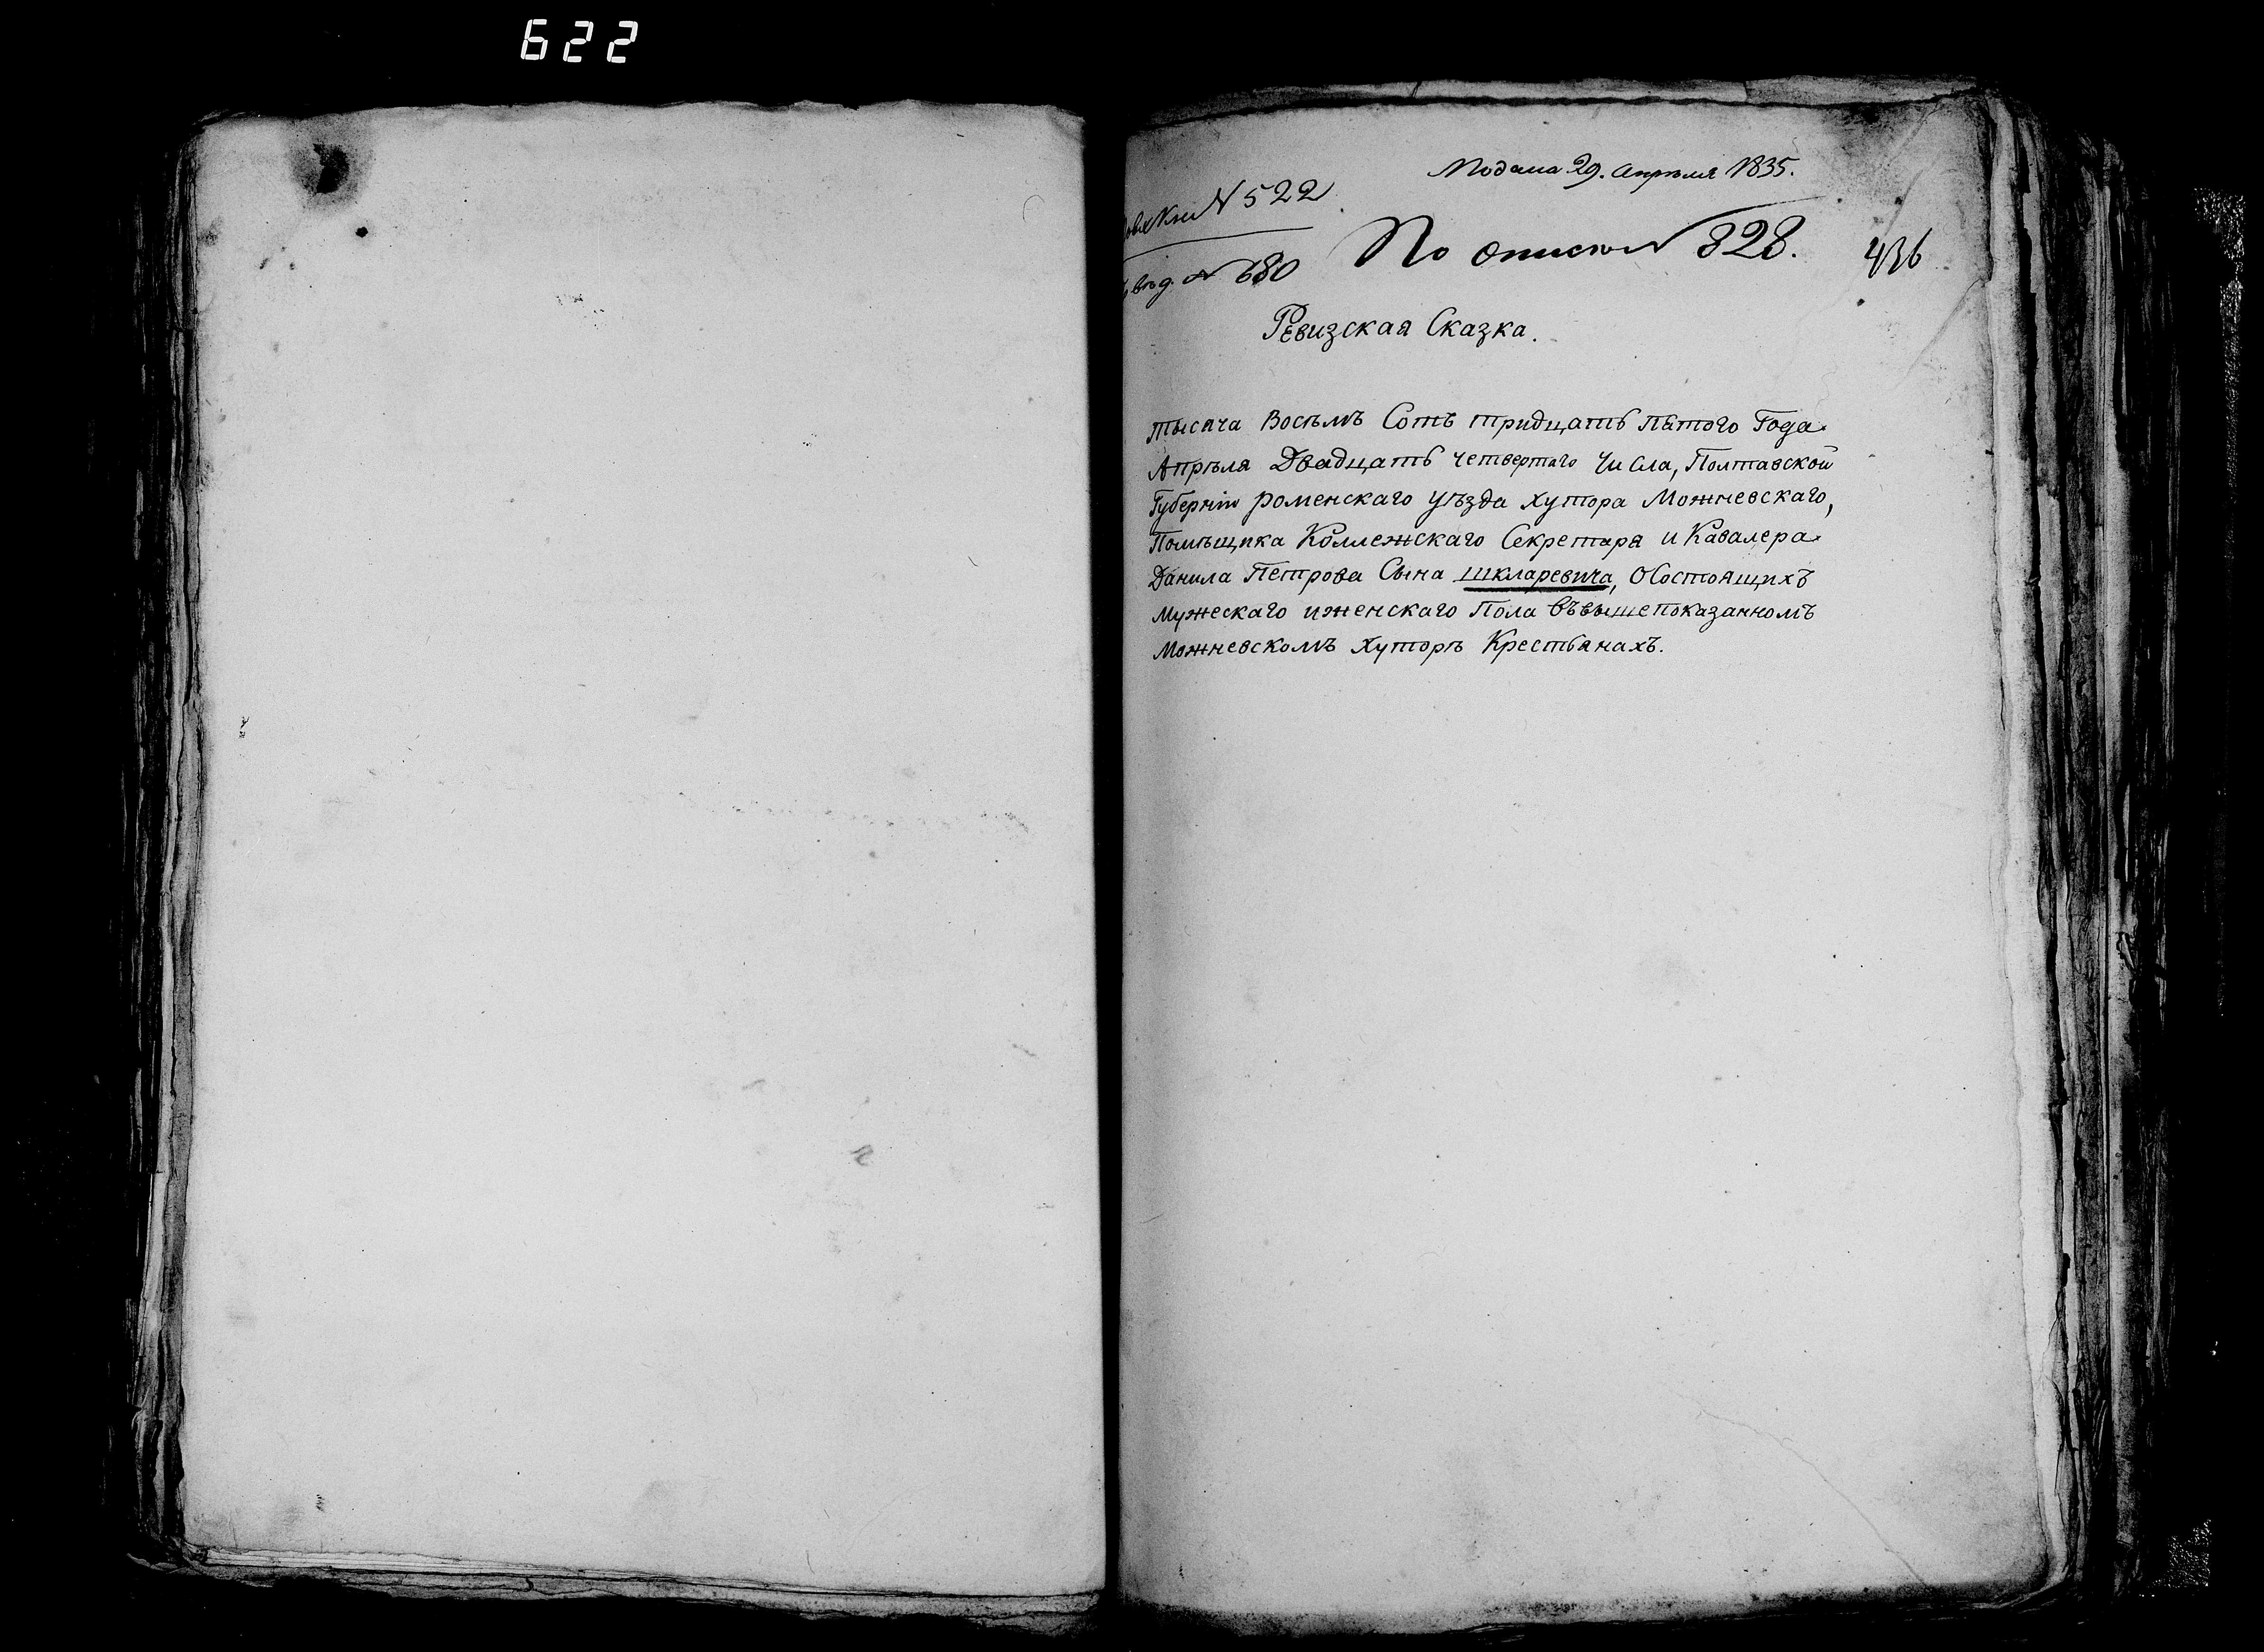 622
Подана 29. Апрѣля 1835.
№ 522
По описи № 828.
436
вѣд. № 680
Ревизская Сказка.
тысяча Восѣмъ Сотъ тридцать Пятого Года
Апрѣля Двадцать четвертаго Числа, Полтавской
Губернiи роменскаго уѣзда хутора Можневскаго,
Помѣщика Коллежскаго Секретаря и Кавалера
Данила Петрова Сына Шкларевича, О Состоящихъ
Мужескаго и женскаго Пола въ вышепоказанномъ
Можневскомъ Хуторѣ Крестьянахъ.